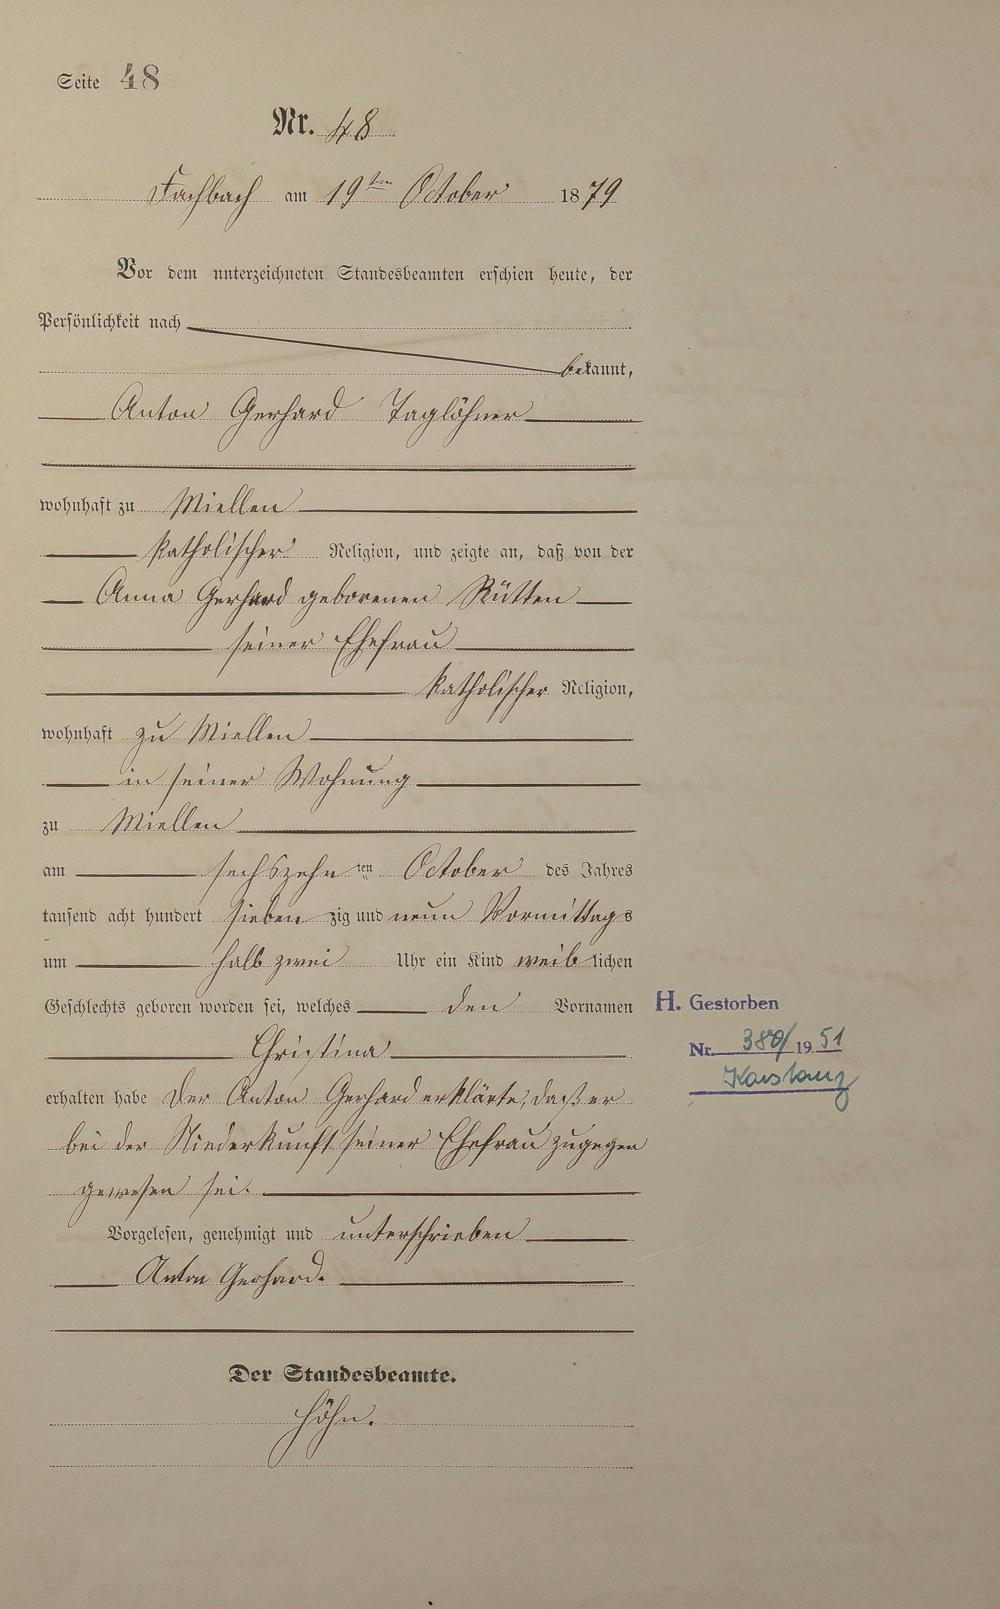 Seite 48
Nr. 48
Fachbach am 19ten October 1879
Vor dem unterzeichneten Standesbeamten erschien heute, der
Persönlichkeit nach
bekannt,
Anton Gerhard Taglöhner
wohnhaft zu Miellen
katholischer Religion, und zeigte an, daß von der
Anna Gerhard geborenen Rütten
seiner Ehefrau
katholischer Religion,
wohnhaft zu Miellen
in seiner Wohnung
zu Miellen
am sechszehn ten October des Jahres
tausend acht hundert sieben zig und neun Vormittags
um halb zwei Uhr ein Kind weiblichen
Geschlechts geboren worden sei, welches den Vornamen
Christina
erhalten habe Der Anton Gerhard erklärte, daß er
bei der Niederkunft seiner Ehefrau zugegen
gewesen sei.
Vorgelesen, genehmigt und unterschrieben
Anton Gerhard.
Der Standesbeamte.
Höhn.
H. Gestorben
Nr. 380/1951
Konstanz